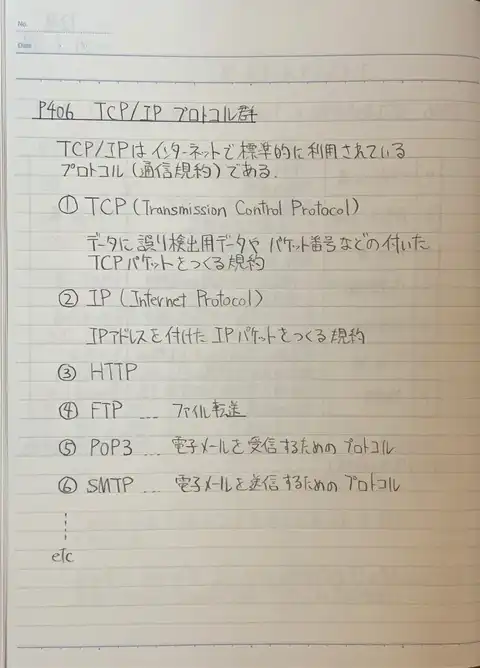 No.
Date
P406 TCP/IP プロトコル群
TCP/IPはインターネットで標準的に利用されている
プロトコル(通信規約)である.
① TCP (Transmission Control Protocol)
データに誤り検出用データや パケット番号などの付いた
TCPパケットをつくる規約
② IP (Internet Protocol)
IPアドレスを付けた IPパケットをつくる規約
③ HTTP
④ FTP ... ファイル転送
⑤ POP3 ... 電子メールを受信するための プロトコル
⑥ SMTP ... 電子メールを送信するための プロトコル
etc